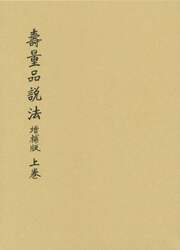 壽量品説法 増補版 上巻